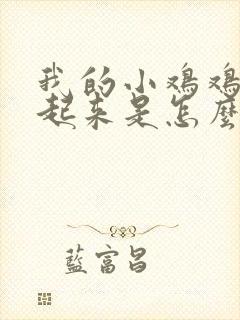 我的小鸡鸡
起来是怎麽
藍富昌